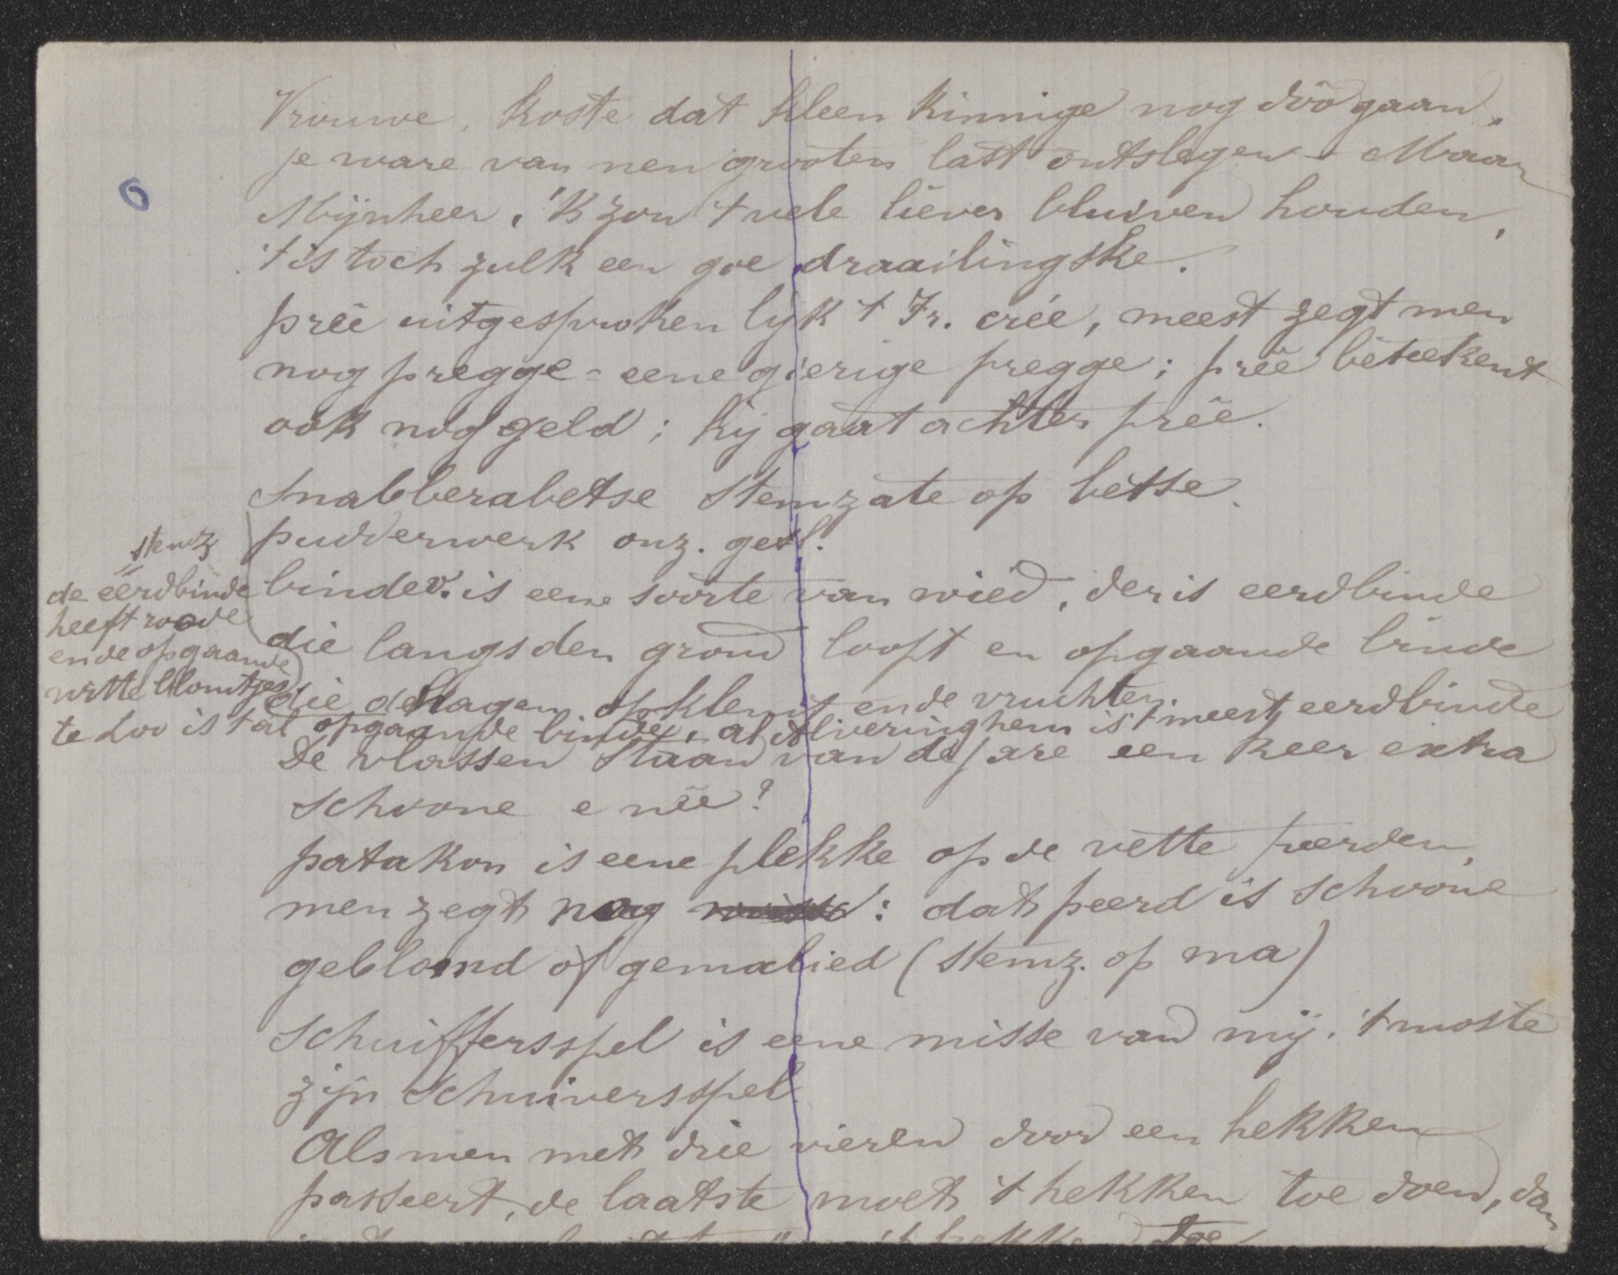 Vrouwe, koste dat kleen kinnige nog dôôgaan,
je ware van nen grooten last ontslegen - Maar
Mijnheer, 'k zou 't vele liever bluiven houden,
't is toch zulk een goe draailingske.
prêe uitgesproken lijk 't Fr. crée, meest zegt men
nog pregge - eene gierige pregge; prêe beteekent
ook nog geld; hij gaat achter prêe.
Snabberabetse stemzate op betse.
pudderwerk onz. gesl.
binde v. is eene soorte van wied, der is eerdbinde
die langs den grond loopt en opgaande binde
die de hagen opklemt ende vruchten.
stemz
de eerdbinde
heeft roode
en de opgaande
witte blomtjes
te Loo is 't al opgaande binde, al Alveringhem is 't meest eerdbinde
De vlassen staan van de jare een keer extra
schoone e nie?
patakon is eene plekke op de vette peerden,
men zegt nog : dat peerd is schoone
geblomd of gemalied (stemz. op ma)
Schuiffersspel is eene misse van mij. 't moste
zijn Schuiversspel
Als men met drie vieren door een hekken
passeert, de laatste moet 't hekken toe doen, dan
toe